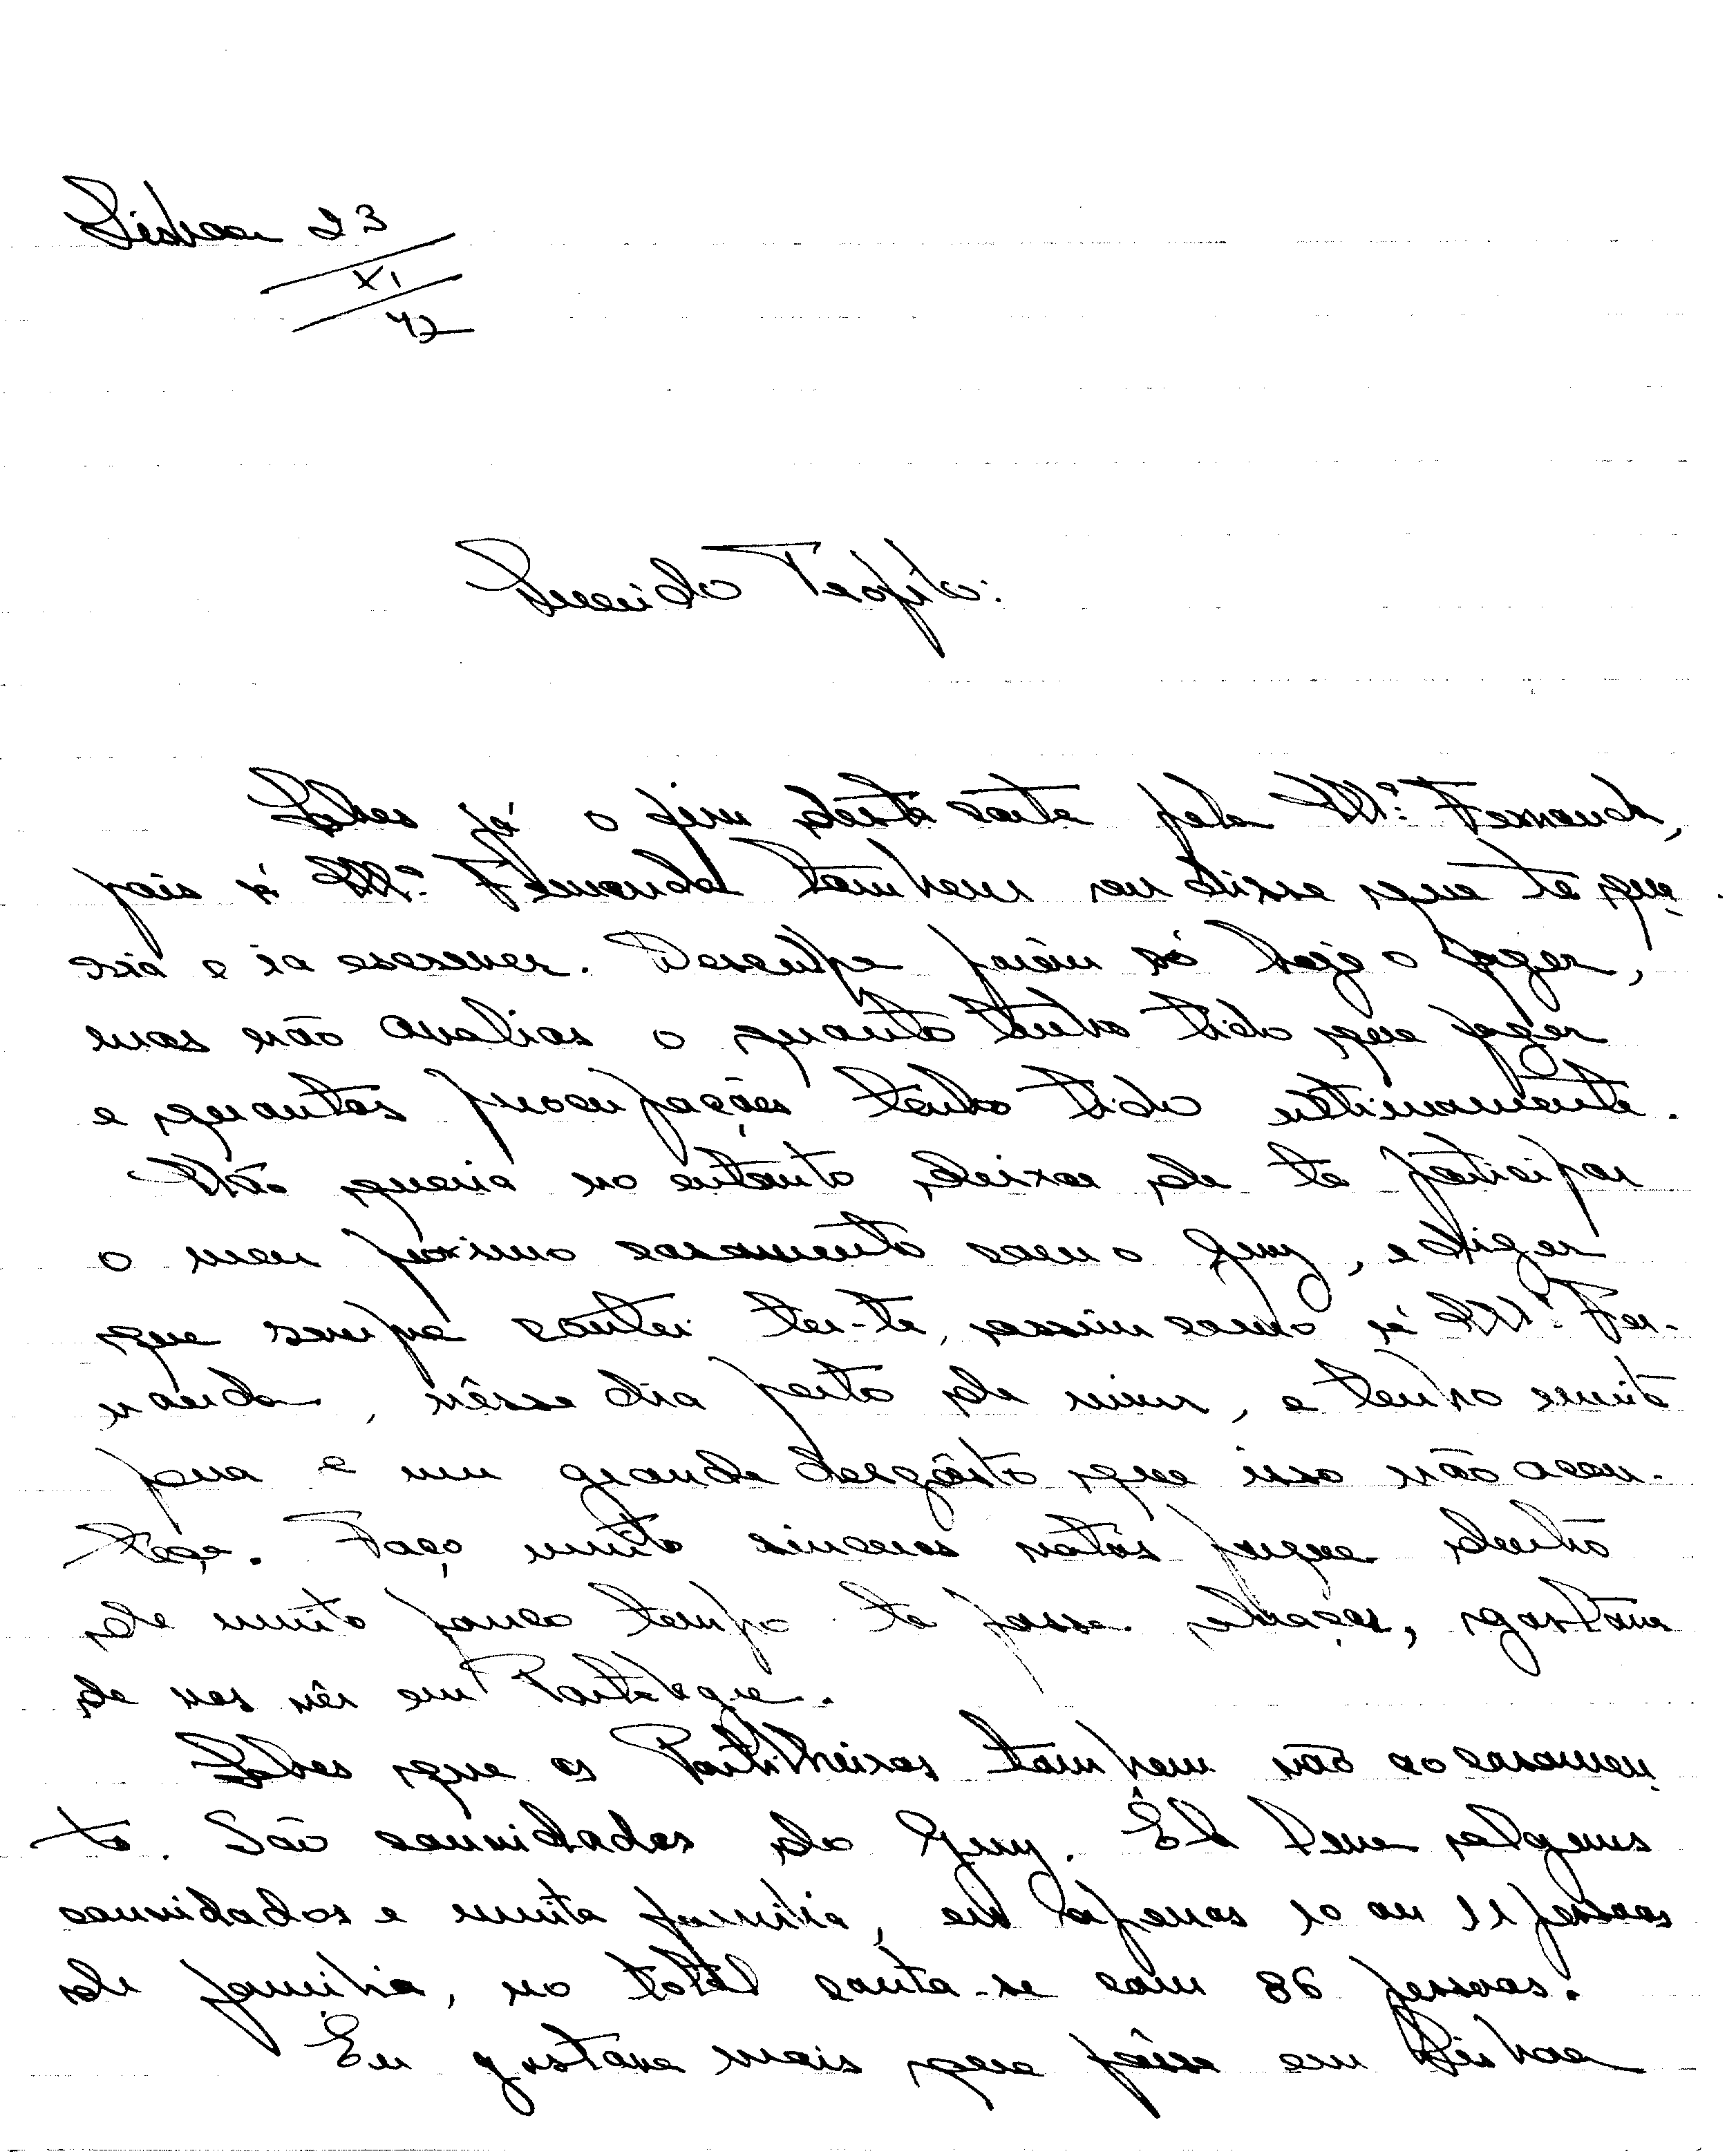 Lisboa 23
XI
42
Querido Teofilo:
Sabes já o fim desta carta pela Mª. Fernanda,
pois á Mª. Fernanda tambem eu disse que te que
ria e ia escrever. Desculpe porêm só hoje o fazer,
mas não avalias o quanto tenho tido que fazer
e quantas preocupações tenho tido ultimamente.
Não queria no entanto deixar de te participar
o meu próximo casamento com o Guy, e dizer
que sempre contei ter-te, assim como á Mª. Fer-
nanda, nêsse dia perto de mim, e tenho muita
pena e um grande desgôsto que isso não acon-
teça. Faço muito sinceros votos porque dentro
de muito pouco tempo te possa abraçar, gostava
de nos vêr em
Sabes que os tambem vão ao casamen
to. São convidados do Guy. Êle teve alguns
convidados e muita familia, eu apenas 10 ou 11 pessoas
de familia, no total conta-se com 86 pessoas.
Eu gostava mais que fôsse em Lisboa